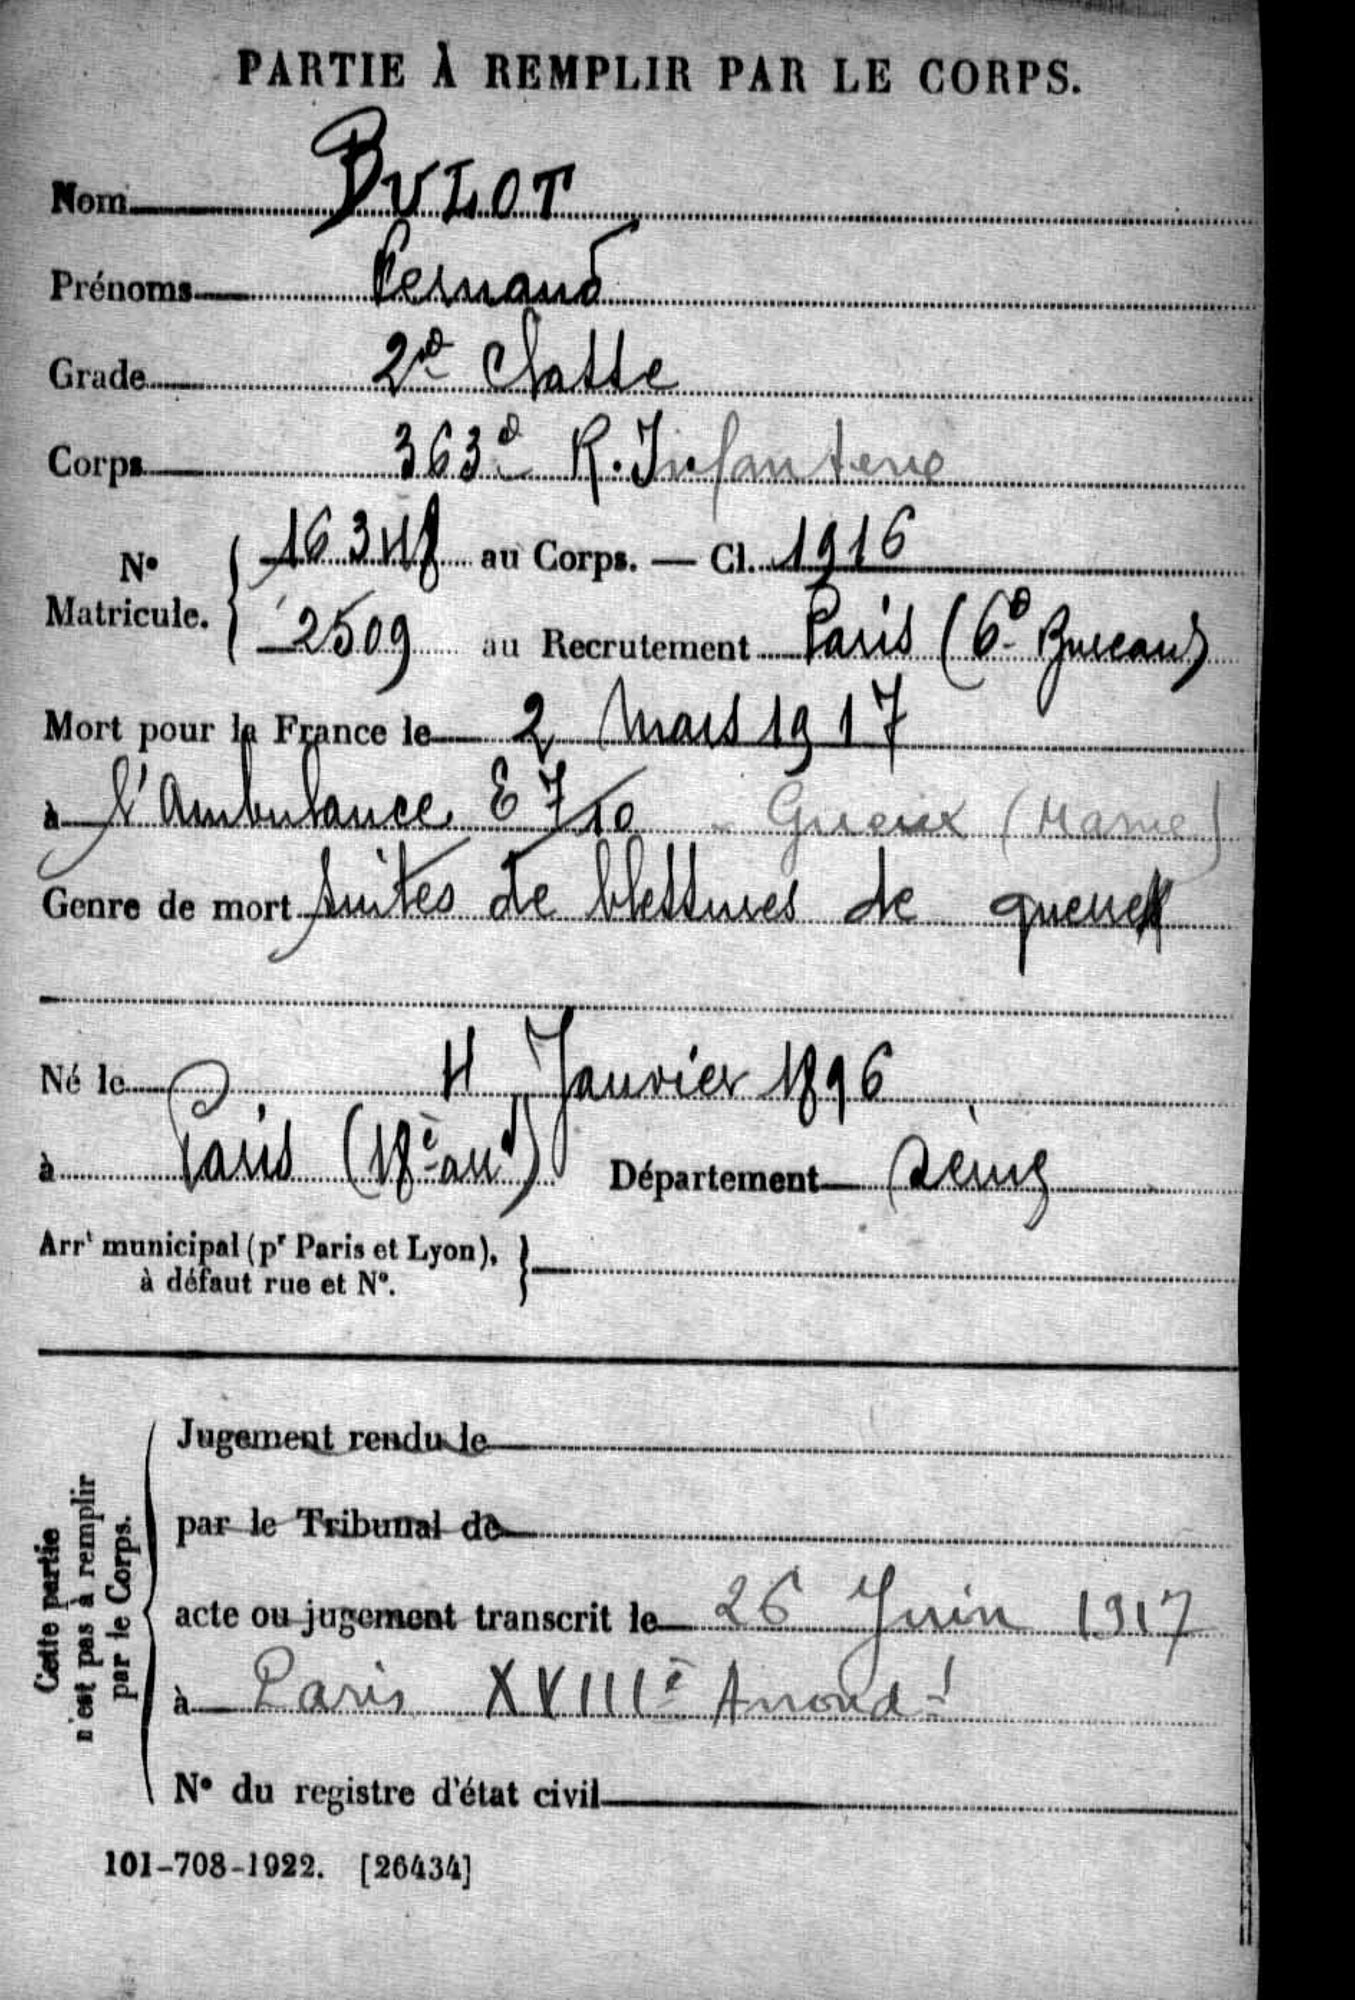 PARTIE À REMPLIR PAR LE CORPS.
Nom BULOT
Prénoms Fernand
Grade 2e Classe
Corps 363e R. Infanterie
No Matricule. { 16348 au Corps. — Cl. 1916
2509 au Recrutement Paris (6e Bureau)
Mort pour la France le 2 Mars 1917
à l'Ambulance E 7/10 - Gueux (Marne)
Genre de mort suites de blessures de guerre
Né le 4 Janvier 1896
à Paris (18e arrt) Département Seine
Arrt municipal (pr Paris et Lyon), }
à défaut rue et No.
Cette partie n'est pas à remplir par le Corps.
Jugement rendu le
par le Tribunal de
acte ou jugement transcrit le 26 Juin 1917
à Paris XVIIIe Arrondt
No du registre d'état civil
101-708-1922. [26434]